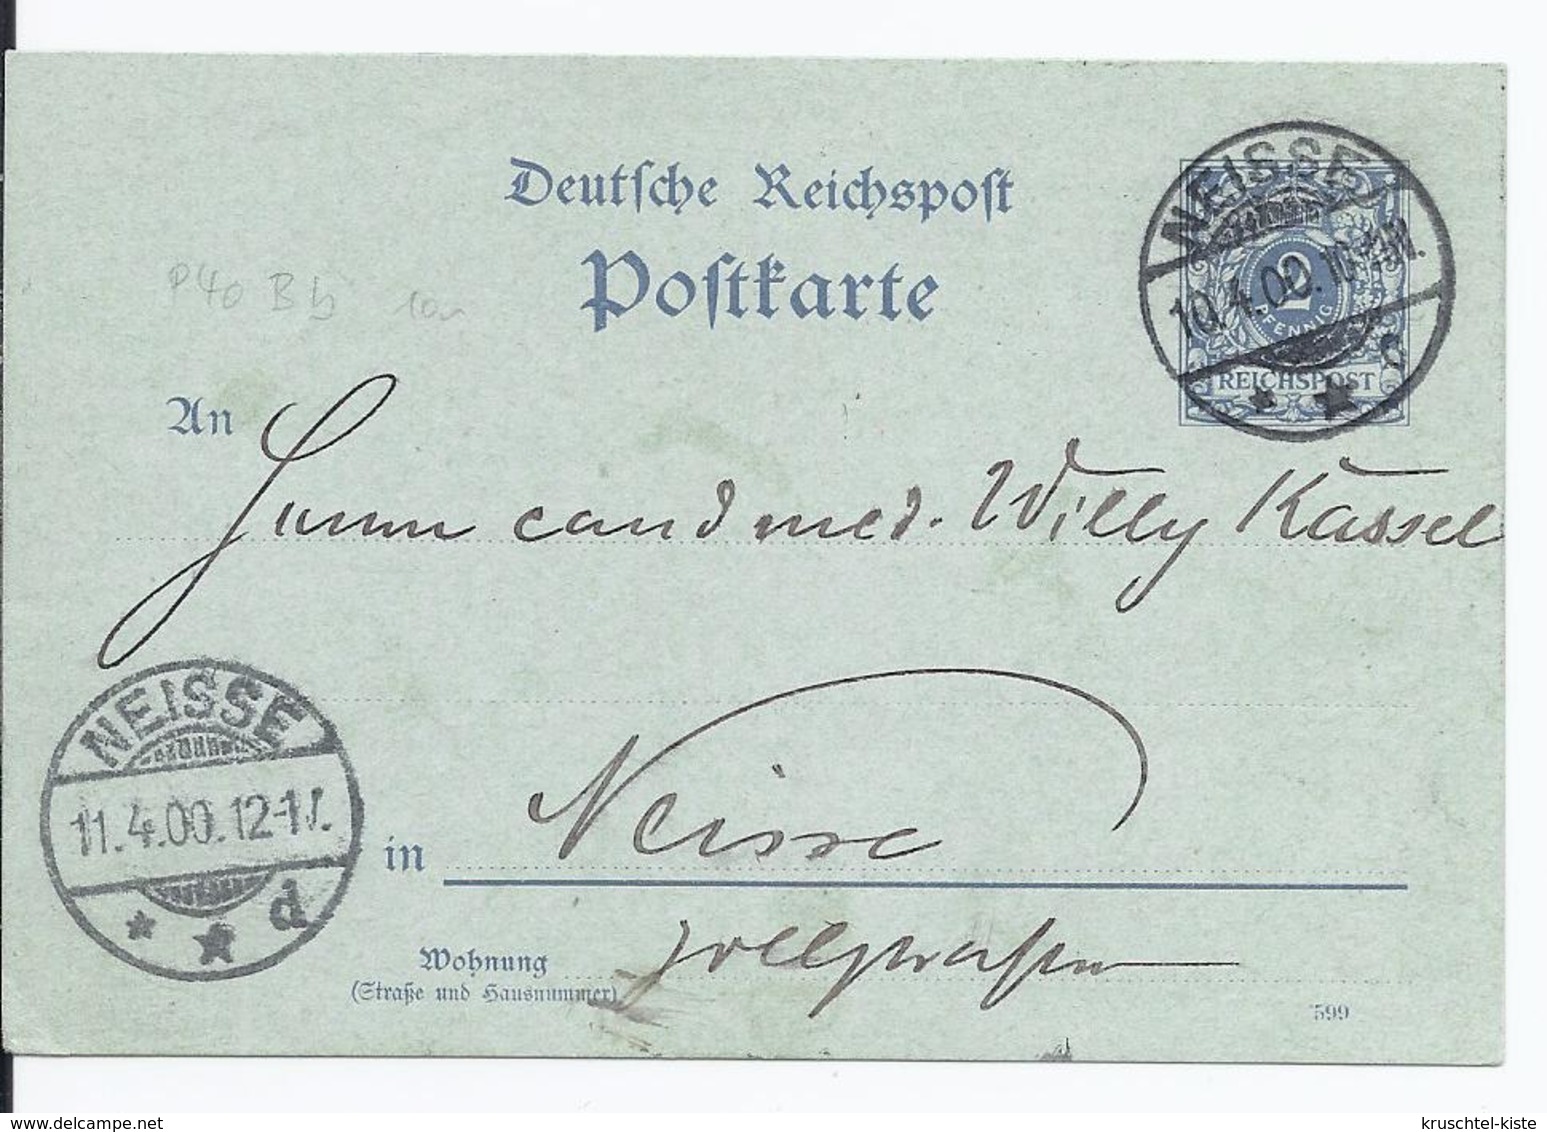 Deutsche Reichspost
Postkarte
NEISSE
10.4.00.10-11N.
c
2
PFENNIG
REICHSPOST
P40 Bb
An
Herrn cand med. Willy Kassel
NEISSE
11.4.00.12-1V.
d
in Neisse
Wohnung Zollstrasse
(Straße und Hausnummer)
599
delcampe.net
kruschtel-kiste